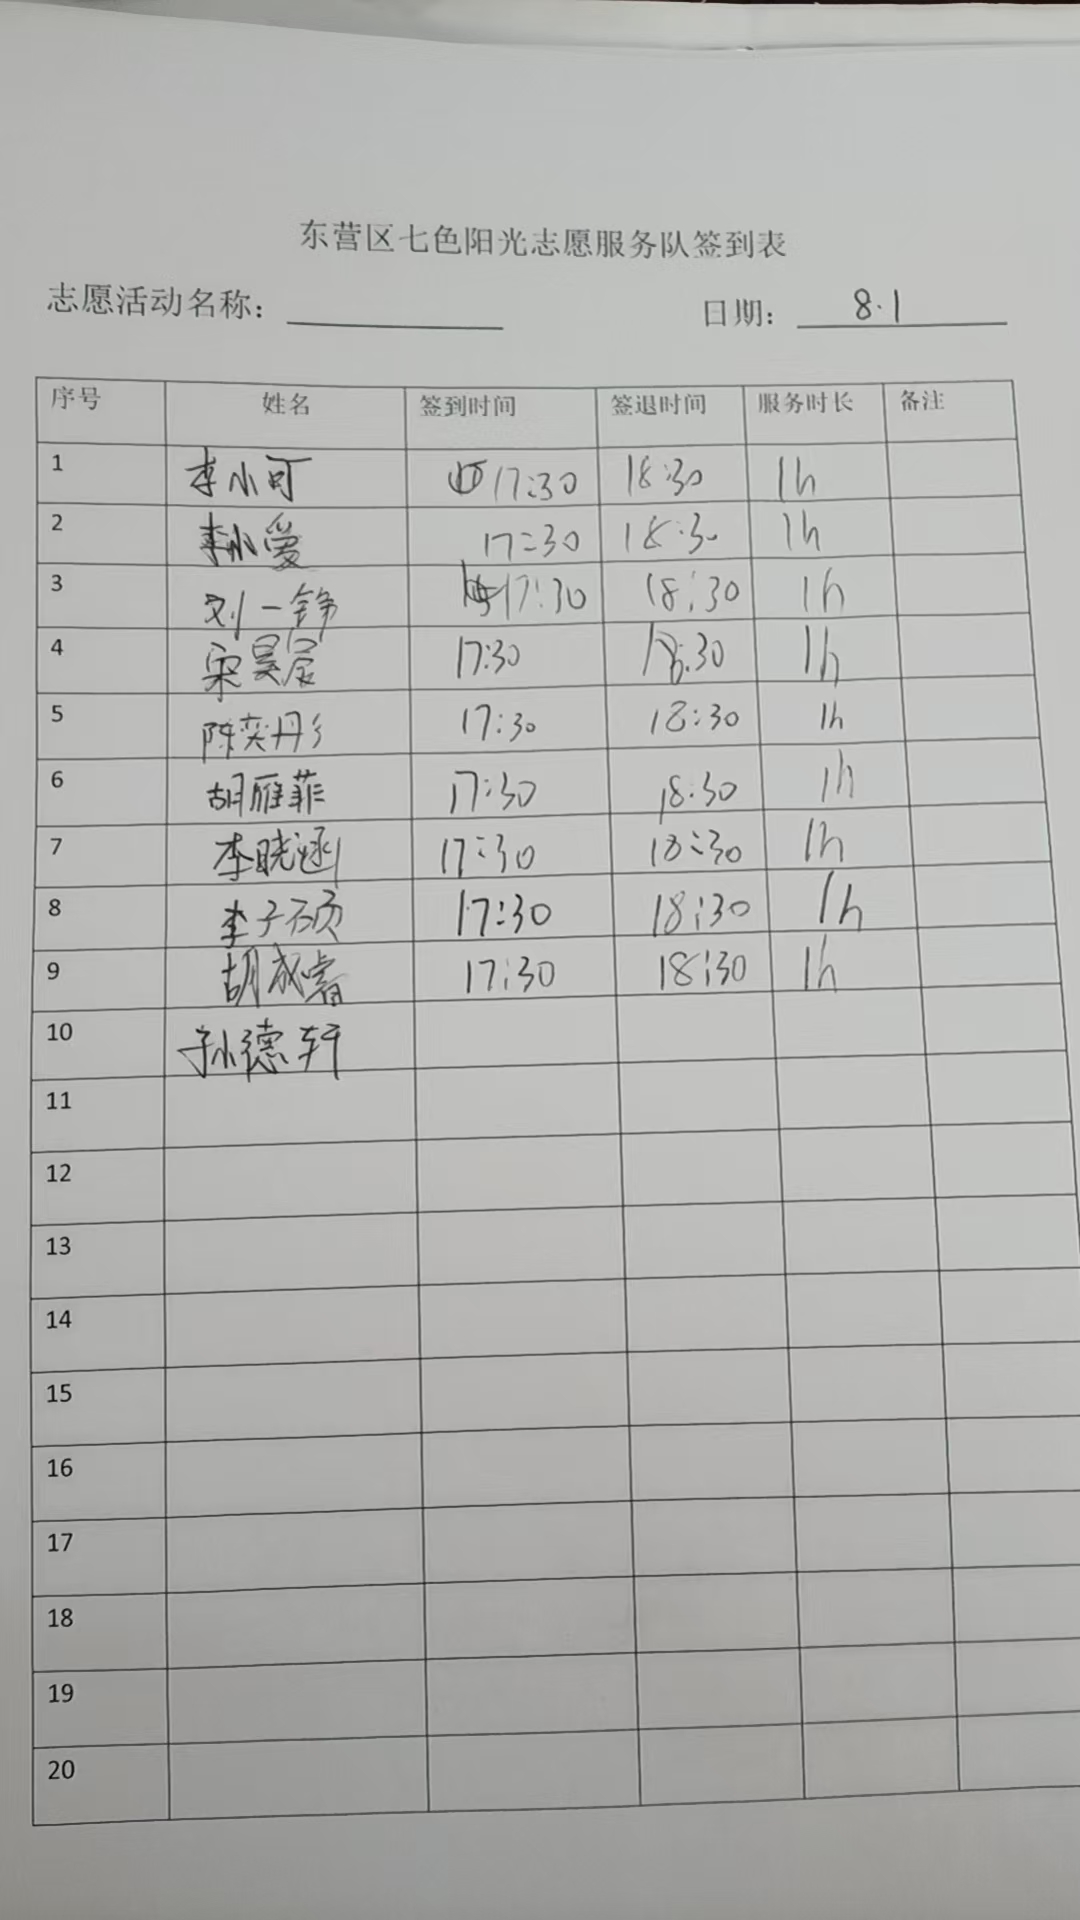 东营区七色阳光志愿服务队签到表
志愿活动名称： 日期： 8.1
序号 姓名 签到时间 签退时间 服务时长 备注
1 李小可 17:30 18:30 1h
2 李小爱 17:30 18:30 1h
3 刘一铮 17:30 18:30 1h
4 宋昊辰 17:30 18:30 1h
5 陈奕彤 17:30 18:30 1h
6 胡雁菲 17:30 18:30 1h
7 李晓涵 17:30 18:30 1h
8 李子硕 17:30 18:30 1h
9 胡成睿 17:30 18:30 1h
10 孙德轩
11
12
13
14
15
16
17
18
19
20